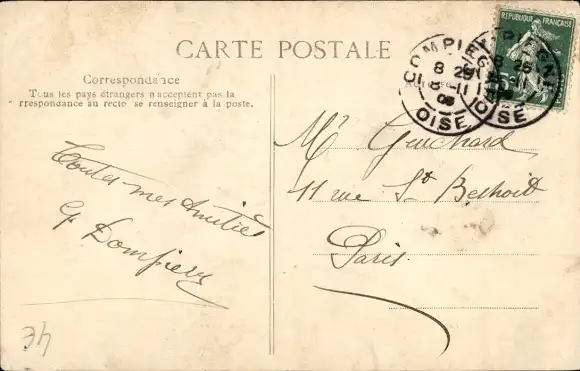 CARTE POSTALE
Correspondance
Tous les pays étrangers n'acceptent pas la
rrespondance au recto se renseigner à la poste.
RÉPUBLIQUE FRANÇAISE
COMPIÈGNE
8 25
8-11
08
OISE
Toutes mes Amitiés
G. Dompierre
Mr Guichard
11 rue St Benoit
Paris